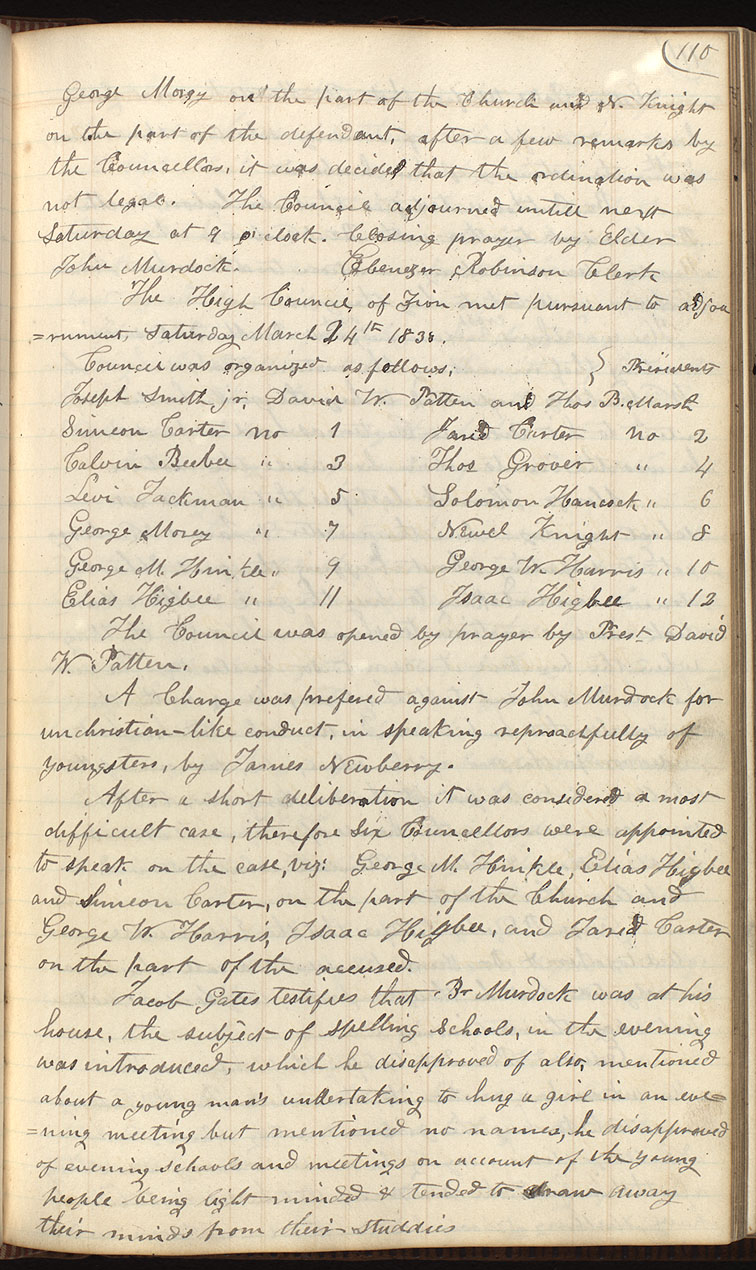 110
George Morey on the part of the Church and N. Knight
on the part of the defendant, after a few remarks by
the Councellors, it was decided that the ordination was
not legal. The Council adjourned untill next
Saturday at 9 o'clock. Closing prayer by Elder
John Murdock. Ebenezer Robinson Clerk
The High Council of Zion met pursuant to adjou
=rnment, Saturday March 24th 1838.
Council was organized as follows; } Presidents
Joseph Smith jr, David W. Patten and Thos B. Marsh
Simeon Carter no 1 Jared Carter no 2
Calvin Beebee " 3 Thos Grover " 4
Levi Jackman " 5 Solomon Hancock " 6
George Morey " 7 Newel Knight " 8
George M. Hinkle " 9 George W. Harris " 10
Elias Higbee " 11 Isaac Higbee " 12
The Council was opened by prayer by Prest David
W. Patten.
A Charge was prefered against John Murdock for
unchristian-like conduct, in speaking reproachfully of
youngsters, by James Newberry.
After a short deliberation it was considered a most
difficult case, therefore Six Councellors were appointed
to speak on the case, viz: George M. Hinkle, Elias Higbee
and Simeon Carter, on the part of the Church and
George W. Harris, Isaac Higbee, and Jared Carter
on the part of the accused.
Jacob Gates testifies that Br Murdock was at his
house, the subject of spelling schools, in the evening
was introduced, which he disapproved of also, mentioned
about a young man's undertaking to hug a girl in an eve=
=ning meeting but mentioned no names, he disapproved
of evening schools and meetings on account of the young
people being light minded & tended to draw away
their minds from their studdies